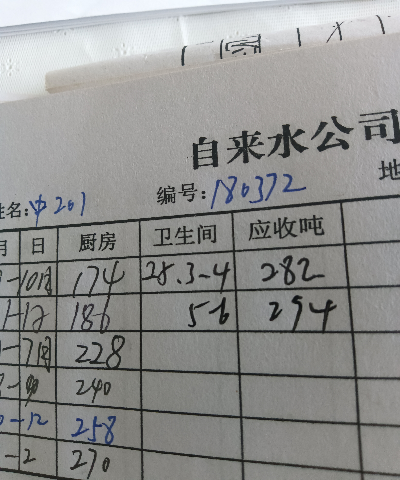 自来水公司
姓名:中201 编号:180372 地
月 日 厨房 卫生间 应收吨
-10月 174 25.3-4 282
1-12 186 5-6 294
-7月 228
240
-12 258
-2 270